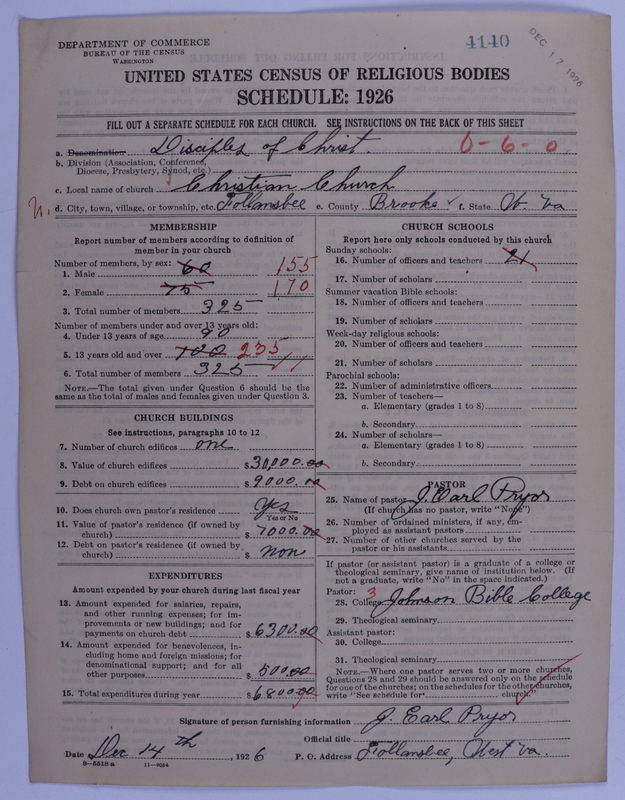 DEPARTMENT OF COMMERCE
BUREAU OF THE CENSUS
WASHINGTON
4140
DEC 17 1926
UNITED STATES CENSUS OF RELIGIOUS BODIES
SCHEDULE: 1926
FILL OUT A SEPARATE SCHEDULE FOR EACH CHURCH. SEE INSTRUCTIONS ON THE BACK OF THIS SHEET
a. Denomination Disciples of Christ. 0-6-0
b. Division (Association, Conference,
Diocese, Presbytery, Synod, etc.)
c. Local name of church Christian Church
d. City, town, village, or township, etc. Follansbee e. County Brooke f. State W. Va
MEMBERSHIP
Report number of members according to definition of
member in your church
Number of members, by sex:
1. Male 60 155
2. Female 75 170
3. Total number of members 325
Number of members under and over 13 years old:
4. Under 13 years of age 90
5. 13 years old and over 100 235
6. Total number of members 325
NOTE.—The total given under Question 6 should be the
same as the total of males and females given under Question 3.
CHURCH BUILDINGS
See instructions, paragraphs 10 to 12
7. Number of church edifices one
8. Value of church edifices $30,000.00
9. Debt on church edifices $9000.00
10. Does church own pastor's residence? Yes
Yes or No
11. Value of pastor's residence (if owned by
church) $7000.00
12. Debt on pastor's residence (if owned by
church) $ non
EXPENDITURES
Amount expended by your church during last fiscal year
13. Amount expended for salaries, repairs,
and other running expenses; for im-
provements or new buildings; and for
payments on church debt $6300.00
14. Amount expended for benevolences, in-
cluding home and foreign missions; for
denominational support; and for all
other purposes $500.00
15. Total expenditures during year $6800.00
CHURCH SCHOOLS
Report here only schools conducted by this church
Sunday schools:
16. Number of officers and teachers 21
17. Number of scholars
Summer vacation Bible schools:
18. Number of officers and teachers
19. Number of scholars
Week-day religious schools:
20. Number of officers and teachers
21. Number of scholars
Parochial schools:
22. Number of administrative officers
23. Number of teachers—
a. Elementary (grades 1 to 8)
b. Secondary
24. Number of scholars—
a. Elementary (grades 1 to 8)
b. Secondary
PASTOR
25. Name of pastor J. Earl Pryor
(If church has no pastor, write "None")
26. Number of ordained ministers, if any, em-
ployed as assistant pastors
27. Number of other churches served by the
pastor or his assistants
If pastor (or assistant pastor) is a graduate of a college or
theological seminary, give name of institution below. (If
not a graduate, write "No" in the space indicated.)
Pastor: 3
28. College Johnson Bible College
29. Theological seminary
Assistant pastor:
30. College
31. Theological seminary
NOTE.—Where one pastor serves two or more churches,
Questions 28 and 29 should be answered only on the schedule
for one of the churches; on the schedules for the other churches,
write "See schedule for church."
Signature of person furnishing information J. Earl Pryor
Official title
Date Dec 14th, 1926 P. O. Address Follansbee, West Va.
8—5518a 11—9034